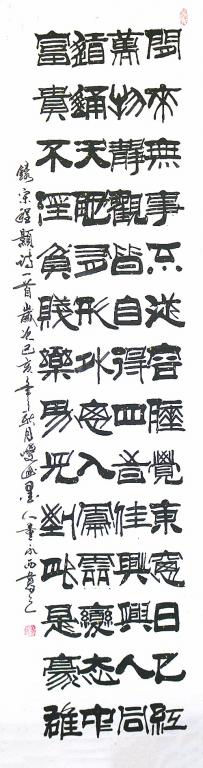 閒來無事不從容睡覺東窗日已紅
萬物靜觀皆自得四旹佳興與人同
道通天地有形外思入風雲變態中
富貴不淫貧賤樂男兒到此是豪雄
錄宋程顥詩一首歲次己亥年秋月墨人董永西書